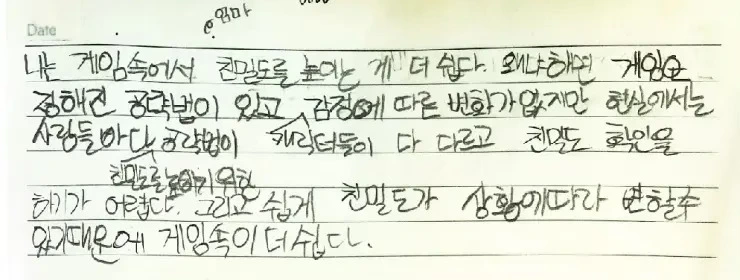 Date
엄마
나는 게임속에서 친밀도를 높이는 게 더 쉽다. 왜냐해면 게임은
정해진 공략법이 있고 감정에 따른 변화가 없지만 현실에서는
사람들마다 공략법이 캐릭터들이 다 다르고 친밀도 확인을
친밀도를 높이기 위한
하기가 어렵다. 그리고 쉽게 친밀도가 상황에따라 변할수
있기때문에 게임속이 더 쉽다.